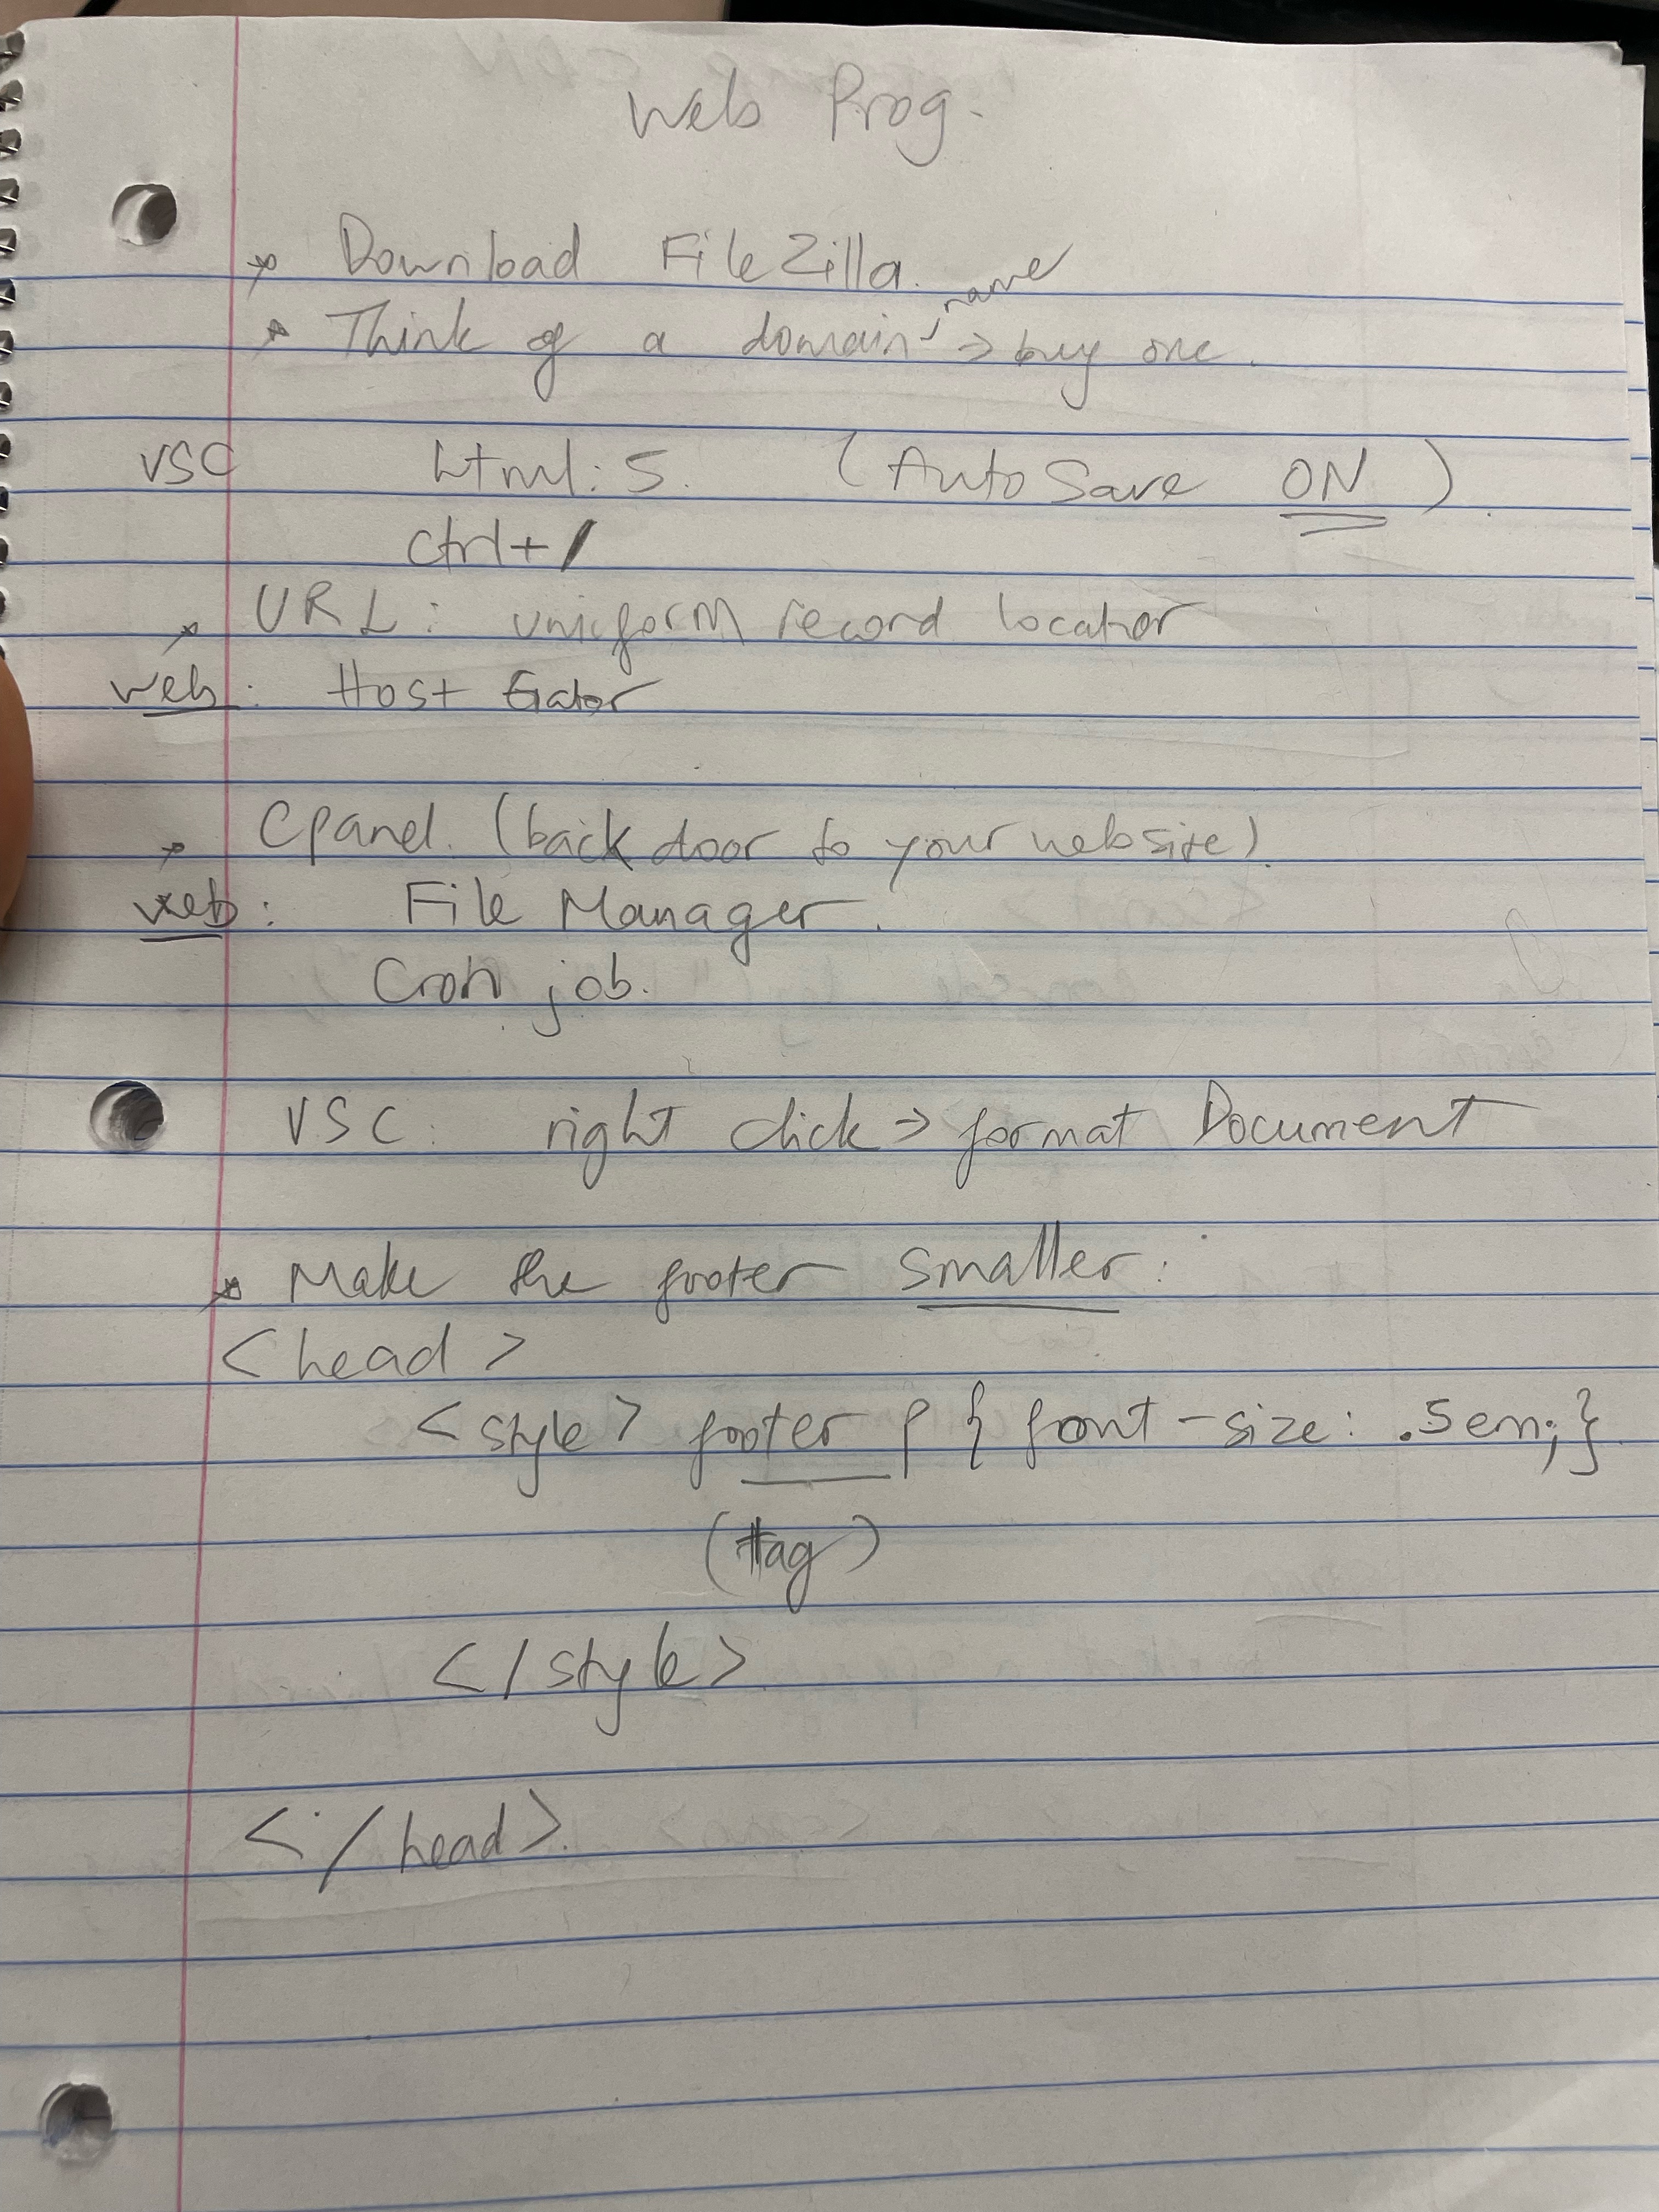 Web Prog.
* Download FileZilla.
* Think of a domain name → buy one.
VSC html:5. (Auto Save ON)
Ctrl+/
* URL: uniform record locator
web: Host Gator
* Cpanel. (back door to your website).
web: File Manager.
Cron job.
VSC: right click → format Document
* Make the footer smaller:
<head>
<style> footer p { font-size: .5em; }
(tag)
</style>
</head>.